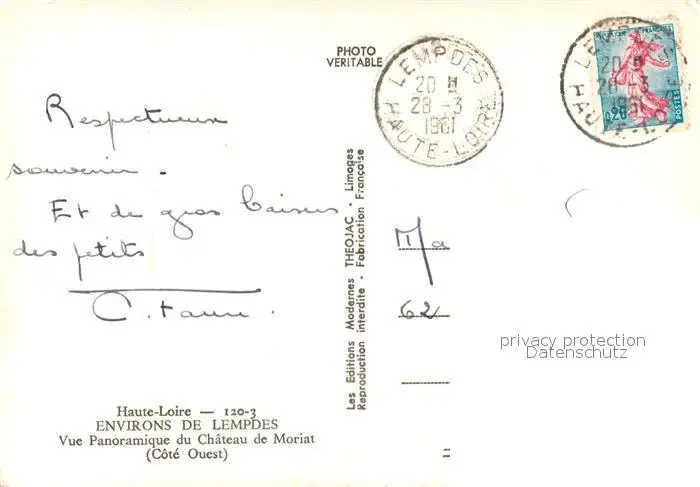 PHOTO
VERITABLE
LEMPDES
20 H
28 -3
1961
HAUTE-LOIRE
REPUBLIQUE FRANÇAISE
20 H
28 -3
1961
0,20
POSTES
Respectueux
souvenir.
Et de gros baisers
des petits
Les Editions Modernes THEOJAC - Limoges
Reproduction interdite - Fabrication Française
Ma
62
privacy protection
Datenschutz
Haute-Loire — 120-3
ENVIRONS DE LEMPDES
Vue Panoramique du Château de Moriat
(Côté Ouest)